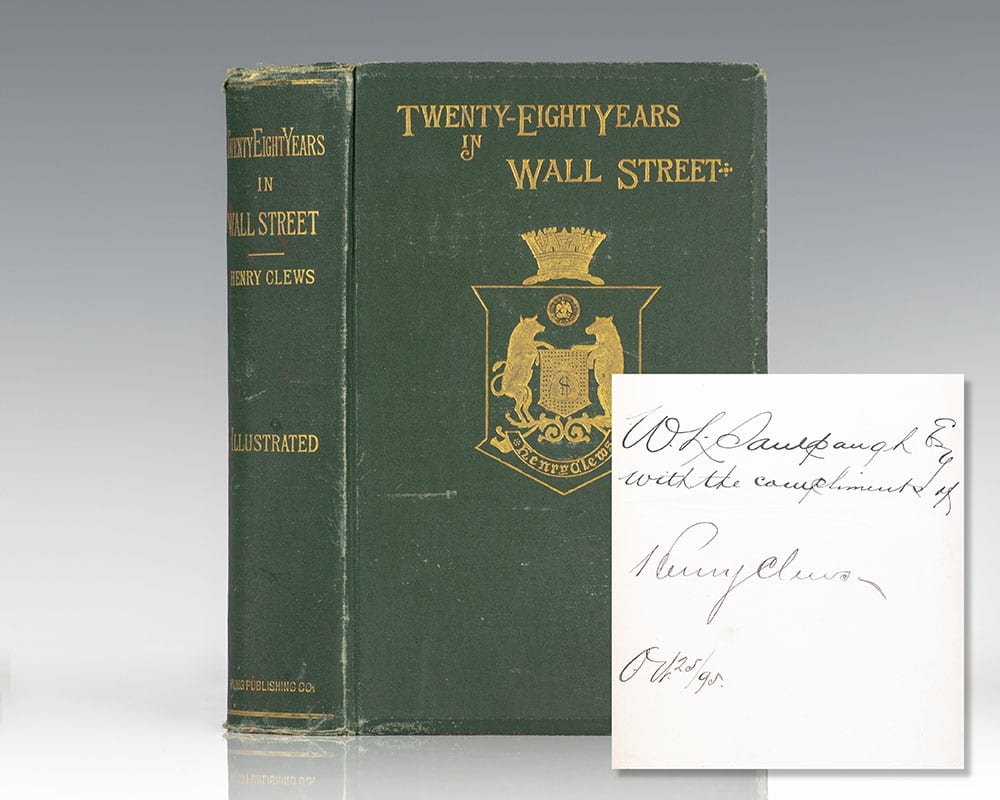 TWENTY EIGHT YEARS
IN
WALL STREET
HENRY CLEWS
ILLUSTRATED
PUBLISHING CO.
TWENTY-EIGHT YEARS
IN
WALL STREET
$
Henry Clews
W. L. Saulpaugh Esq
with the compliments of
Henry Clews
Oct. 25/95.